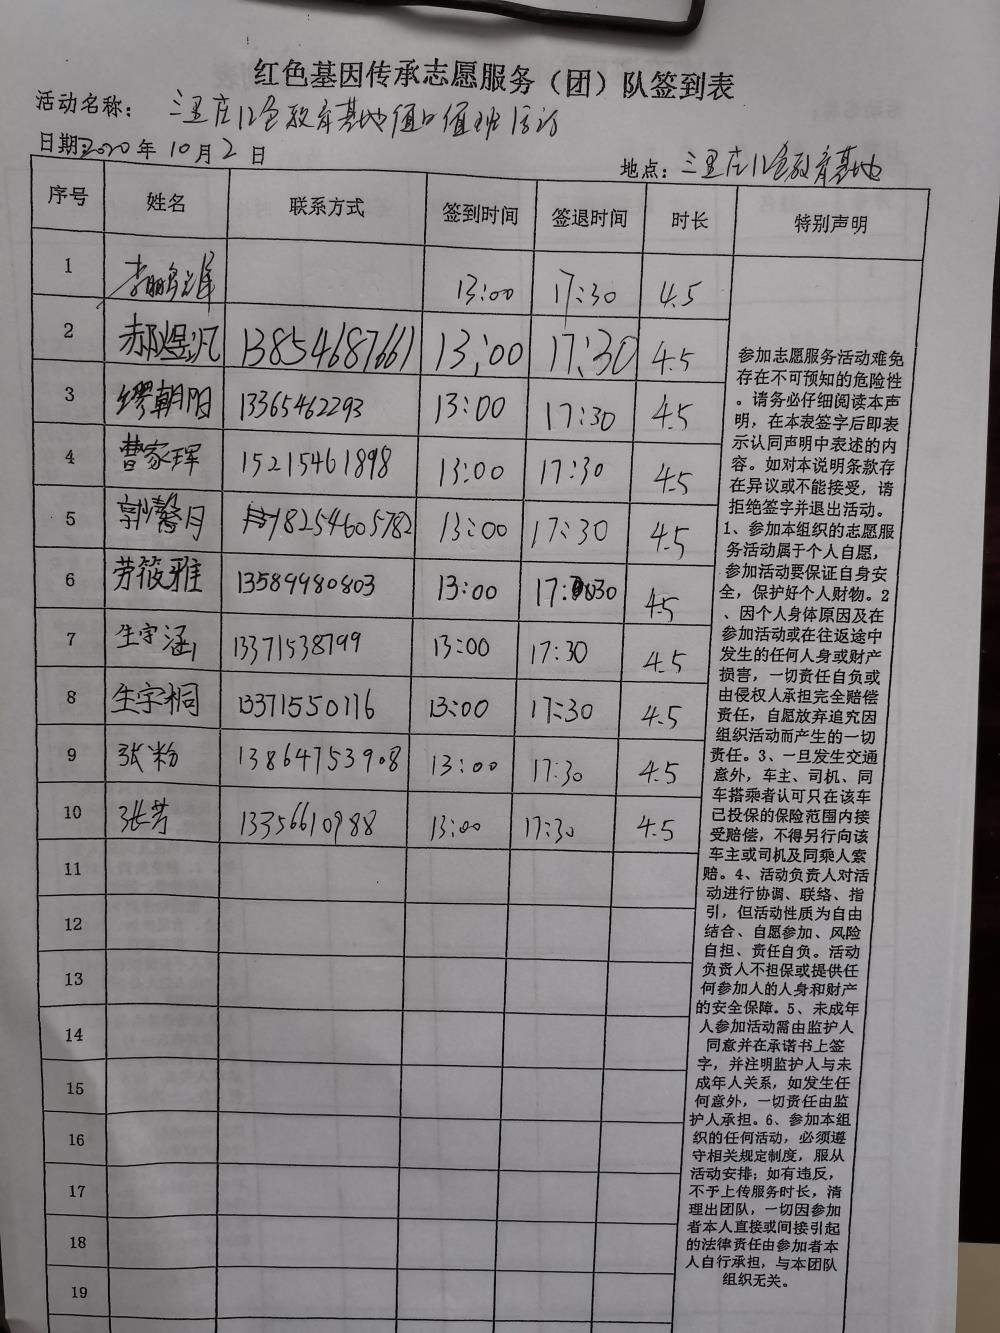 红色基因传承志愿服务（团）队签到表
活动名称： 三里庄红色教育基地值班活动
日期：2020年10月2日
地点：三里庄红色教育基地
序号 姓名 联系方式 签到时间 签退时间 时长 特别声明
1 13:00 17:30 4.5
2 郝煜汎 13854687661 13:00 17:30 4.5
3 缪朝阳 13365462293 13:00 17:30 4.5
4 曹家珲 15215461898 13:00 17:30 4.5
5 郭馨月 18254605782 13:00 17:30 4.5
6 劳筱雅 13589980803 13:00 17:30 4.5
7 生宇涵 13371538799 13:00 17:30 4.5
8 生宇桐 13371550116 13:00 17:30 4.5
9 张粉 13864753908 13:00 17:30 4.5
10 张芳 13356610988 13:00 17:30 4.5
11
12
13
14
15
16
17
18
19
参加志愿服务活动难免
存在不可预知的危险性
。请务必仔细阅读本声
明，在本表签字后即表
示认同声明中表述的内
容。如对本说明条款存
在异议或不能接受，请
拒绝签字并退出活动。
1、参加本组织的志愿服
务活动属于个人自愿，
参加活动要保证自身安
全，保护好个人财物。2
、因个人身体原因及在
参加活动或在往返途中
发生的任何人身或财产
损害，一切责任自负或
由侵权人承担完全赔偿
责任，自愿放弃追究因
组织活动而产生的一切
责任。3、一旦发生交通
意外，车主、司机、同
车搭乘者认可只在该车
已投保的保险范围内接
受赔偿，不得另行向该
车主或司机及同乘人索
赔。4、活动负责人对活
动进行协调、联络、指
引，但活动性质为自由
结合、自愿参加、风险
自担、责任自负。活动
负责人不担保或提供任
何参加人的人身和财产
的安全保障。5、未成年
人参加活动需由监护人
同意并在承诺书上签
字，并注明监护人与未
成年人关系，如发生任
何意外，一切责任由监
护人承担。6、参加本组
织的任何活动，必须遵
守相关规定制度，服从
活动安排；如有违反，
不予上传服务时长，清
理出团队，一切因参加
者本人直接或间接引起
的法律责任由参加者本
人自行承担，与本团队
组织无关。